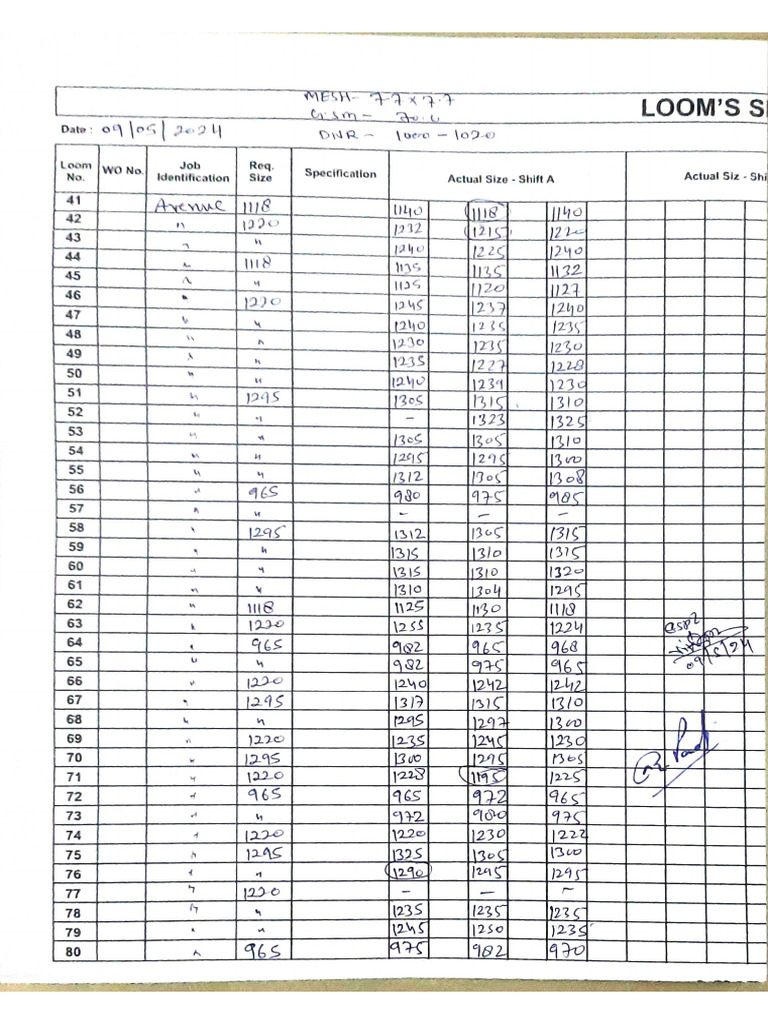 MESH- 7.7 x 7.7
LOOM'S S
G.sm - 70.6
Date : 09/05/2024 DNR - 1000 - 1020
Loom No. WO No. Job Identification Req. Size Specification Actual Size - Shift A Actual Siz - Shi
41 Avenue 1118 1140 1118 1140
42 " 1220 1232 1215 1220
43 " " 1240 1225 1240
44 " 1118 1135 1135 1132
45 " " 1125 1120 1127
46 " 1220 1245 1237 1240
47 " " 1240 1235 1235
48 " " 1230 1235 1230
49 " " 1235 1227 1228
50 " " 1240 1239 1230
51 " 1295 1305 1315 1310
52 " " - 1323 1325
53 " " 1305 1305 1310
54 " " 1295 1295 1300
55 " " 1312 1305 1308
56 " 965 980 975 985
57 " " - - -
58 " 1295 1312 1305 1315
59 " " 1315 1310 1315
60 " " 1315 1310 1320
61 " " 1310 1304 1295
62 " 1118 1125 1130 1118
63 " 1220 1255 1235 1224
64 " 965 982 965 968
65 " " 982 975 965
09/5/24
66 " 1220 1240 1242 1242
67 " 1295 1317 1315 1310
68 " " 1295 1297 1300
69 " 1220 1235 1245 1230
70 " 1295 1300 1295 1305
71 " 1220 1228 1195 1225
72 " 965 965 972 965
73 " " 972 980 975
74 " 1220 1220 1230 1222
75 " 1295 1325 1305 1300
76 " " 1290 1295 1295
77 " 1220 - - -
78 " " 1235 1235 1235
79 " " 1245 1250 1235
80 " 965 975 982 970